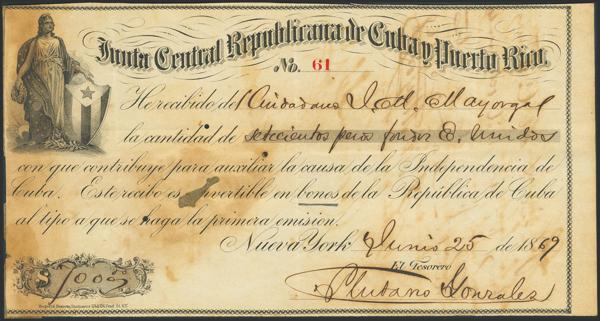 Junta Central Republicana de Cuba y Puerto Rico.
No. 61
He recibido del Ciudadano J. M. Mayorga
la cantidad de setecientos pesos fondos E. Unidos
con que contribuye para auxiliar la causa de la Independencia de
Cuba. Este recibo es vertible en bonos de la República de Cuba
al tipo a que se haga la primera emisión.
Nueva York Junio 25 de 1869
El Tesorero
$700
Gonzales